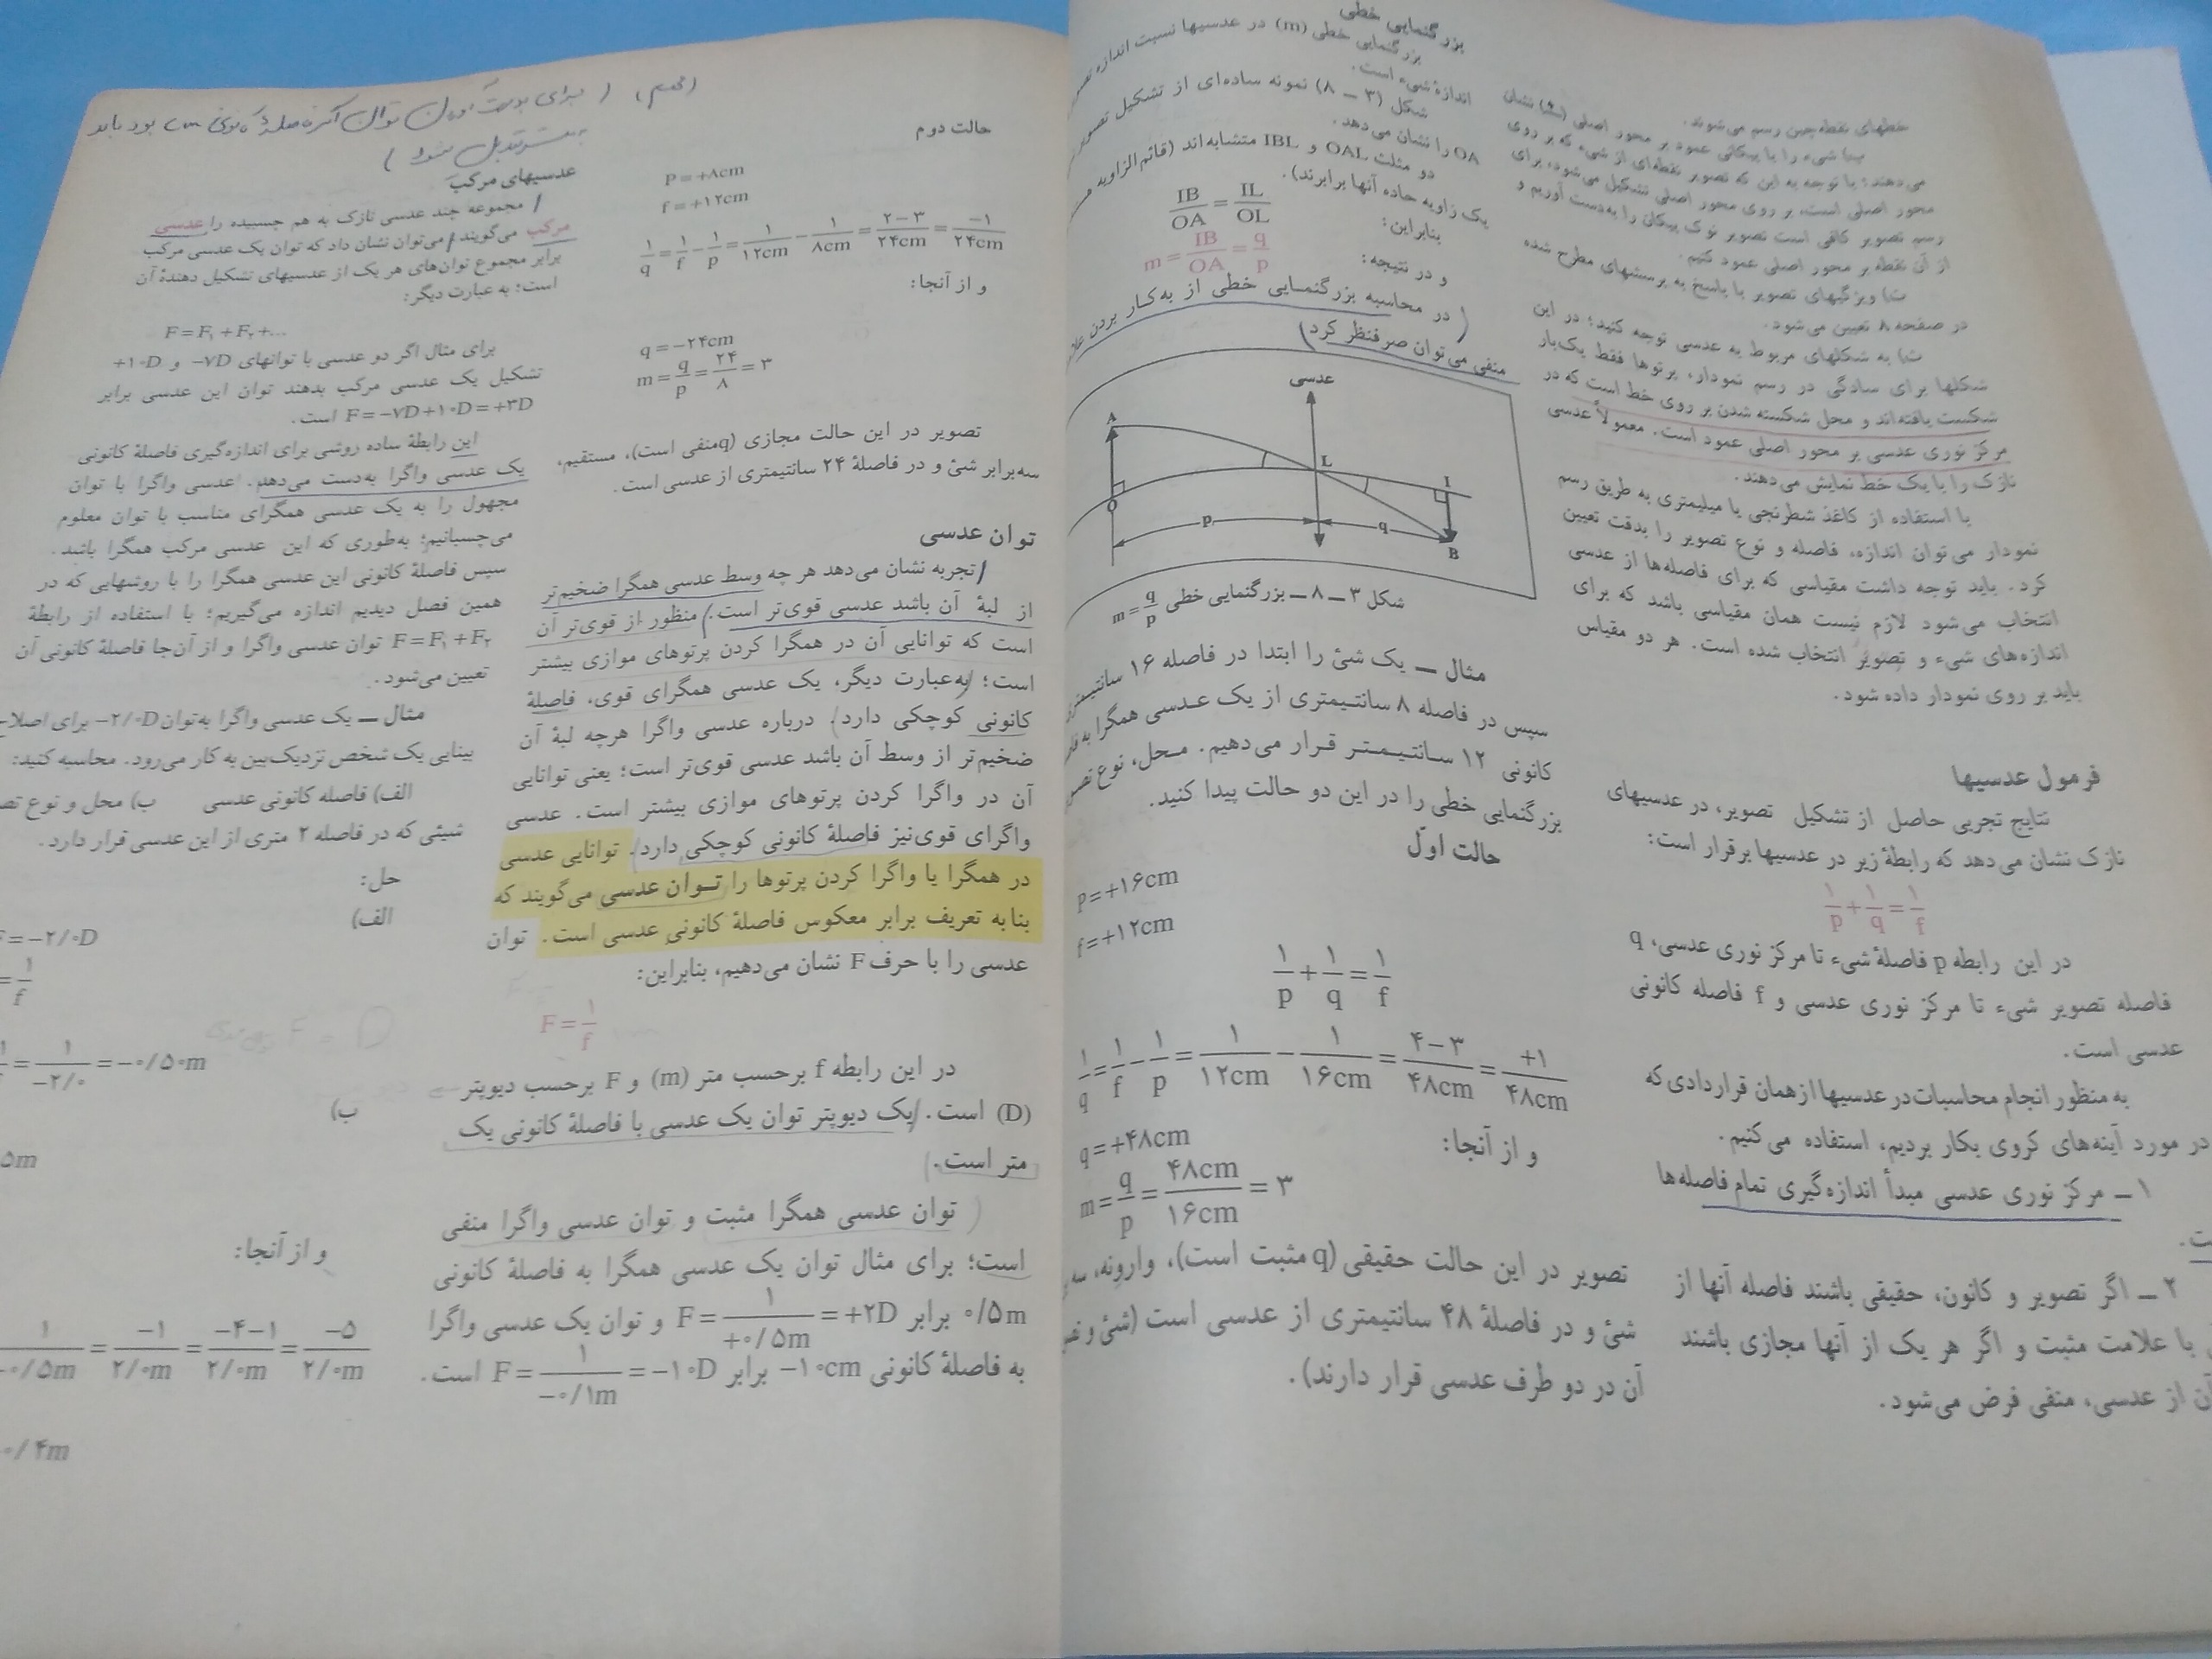 خطهای نقطه‌چین رسم می‌شوند.
پـ) شیء را با پیکانی عمود بر محور اصلی نشان
می‌دهند؛ با توجه به این که تصویر نقطه‌ای از شیء که بر روی
محور اصلی است، بر روی محور اصلی تشکیل می‌شود، برای
رسم تصویر کافی است تصویر نوک پیکان را به‌دست آوریم و
از آن نقطه بر محور اصلی عمود کنیم.
ت) ویژگیهای تصویر با پاسخ به پرسشهای مطرح شده
در صفحه ۸ تعیین می‌شود.
ث) به شکلهای مربوط به عدسی توجه کنید؛ در این
شکلها برای سادگی در رسم نمودار، پرتوها فقط یک‌بار
شکست یافته‌اند و محل شکسته شدن بر روی خط است که در
مرکز نوری عدسی بر محور اصلی عمود است. معمولاً عدسی
نازک را با یک خط نمایش می‌دهند.
با استفاده از کاغذ شطرنجی یا میلیمتری به طریق رسم
نمودار می‌توان اندازه، فاصله و نوع تصویر را بدقت تعیین
کرد. باید توجه داشت مقیاسی که برای فاصله‌ها از عدسی
انتخاب می‌شود لازم نیست همان مقیاسی باشد که برای
اندازه‌های شیء و تصویر انتخاب شده است. هر دو مقیاس
باید بر روی نمودار داده شود.
فرمول عدسیها
نتایج تجربی حاصل از تشکیل تصویر، در عدسیهای
نازک نشان می‌دهد که رابطهٔ زیر در عدسیها برقرار است:
۱/p + ۱/q = ۱/f
در این رابطه p فاصلهٔ شیء تا مرکز نوری عدسی، q
فاصله تصویر شیء تا مرکز نوری عدسی و f فاصله کانونی
عدسی است.
به منظور انجام محاسبات در عدسیها از همان قراردادی که
در مورد آینه‌های کروی بکار بردیم، استفاده می‌کنیم.
۱ ــ مرکز نوری عدسی مبدأ اندازه‌گیری تمام فاصله‌ها
۲ ــ اگر تصویر و کانون، حقیقی باشند فاصله آنها از
با علامت مثبت و اگر هر یک از آنها مجازی باشند
آن از عدسی، منفی فرض می‌شود.
بزرگنمایی خطی
بزرگنمایی خطی (m) در عدسیها نسبت اندازه
اندازهٔ شیء است.
شکل (۳ ــ ۸) نمونه ساده‌ای از تشکیل تصویر
OA را نشان می‌دهد.
دو مثلث OAL و IBL متشابه‌اند (قائم‌الزاویه
یک زاویه حاده آنها برابرند).
بنابراین: IB/OA = IL/OL
و در نتیجه: m = IB/OA = q/p
در محاسبه بزرگنمـایی خطی از به‌کـار بردن
منفی می‌توان صرفنظر کرد
عدسی
A
L
I
O
p
q
B
شکل ۳ ــ ۸ ــ بزرگنمایی خطی m = q/p
مثال ــ یک شئ را ابتدا در فاصله ۱۶
سپس در فاصله ۸ سانتیمتری از یک عـدسی همگرا
کانونی ۱۲ سـانتـیـمـتـر قـرار می‌دهیم. مـحل، نوع
بزرگنمایی خطی را در این دو حالت پیدا کنید.
حالت اوّل
p = +۱۶cm
f = +۱۲cm
۱/p + ۱/q = ۱/f
۱/q = ۱/f − ۱/p = ۱/۱۲cm − ۱/۱۶cm = ۴−۳/۴۸cm = +۱/۴۸cm
و از آنجا: q = +۴۸cm
m = q/p = ۴۸cm/۱۶cm = ۳
تصویر در این حالت حقیقی (q مثبت است)، وارونه،
شئ و در فاصلهٔ ۴۸ سانتیمتری از عدسی است (شئ و
آن در دو طرف عدسی قرار دارند).
حالت دوم
P = +۸cm
f = +۱۲cm
۱/q = ۱/f − ۱/p = ۱/۱۲cm − ۱/۸cm = ۲−۳/۲۴cm = −۱/۲۴cm
و از آنجا:
q = −۲۴cm
m = q/p = ۲۴/۸ = ۳
تصویر در این حالت مجازی (q منفی است)، مستقیم،
سه‌برابر شئ و در فاصلهٔ ۲۴ سانتیمتری از عدسی است.
توان عدسی
تجربه نشان می‌دهد هر چه وسط عدسی همگرا ضخیم‌تر
از لبهٔ آن باشد عدسی قوی‌تر است. منظور از قوی‌تر آن
است که توانایی آن در همگرا کردن پرتوهای موازی بیشتر
است؛ به‌عبارت دیگر، یک عدسی همگرای قوی، فاصلهٔ
کانونی کوچکی دارد. درباره عدسی واگرا هرچه لبهٔ آن
ضخیم‌تر از وسط آن باشد عدسی قوی‌تر است؛ یعنی توانایی
آن در واگرا کردن پرتوهای موازی بیشتر است. عدسی
واگرای قوی‌نیز فاصلهٔ کانونی کوچکی دارد. توانایی عدسی
در همگرا یا واگرا کردن پرتوها را تـوان عدسی می‌گویند که
بنا به تعریف برابر معکوس فاصلهٔ کانونی عدسی است. توان
عدسی را با حرف F نشان می‌دهیم، بنابراین:
F = ۱/f
در این رابطه f برحسب متر (m) و F برحسب دیوپتر
(D) است. یک دیوپتر توان یک عدسی با فاصلهٔ کانونی یک
متر است.
توان عدسی همگرا مثبت و توان عدسی واگرا منفی
است؛ برای مثال توان یک عدسی همگرا به فاصلهٔ کانونی
۰/۵m برابر F = ۱/+۰/۵m = +۲D و توان یک عدسی واگرا
به فاصلهٔ کانونی −۱۰cm برابر F = ۱/−۰/۱m = −۱۰D است.
(مهم) (برای بدست آوردن توان اگر فاصلهٔ کانونی cm بود باید
به متر تبدیل شود)
عدسیهای مرکب
مجموعه چند عدسی نازک به هم چسبیده را عدسی
مرکب می‌گویند. می‌توان نشان داد که توان یک عدسی مرکب
برابر مجموع توان‌های هر یک از عدسیهای تشکیل دهندهٔ آن
است؛ به عبارت دیگر:
F = F₁ + F₂ + ...
برای مثال اگر دو عدسی با توانهای −۷D و +۱۰D
تشکیل یک عدسی مرکب بدهند توان این عدسی برابر
F = −۷D + ۱۰D = +۳D است.
این رابطهٔ ساده روشی برای اندازه‌گیری فاصلهٔ کانونی
یک عدسی واگرا به‌دست می‌دهد. عدسی واگرا با توان
مجهول را به یک عدسی همگرای مناسب با توان معلوم
می‌چسبانیم؛ به‌طوری که این عدسی مرکب همگرا باشد.
سپس فاصلهٔ کانونی این عدسی همگرا را با روشهایی که در
همین فصل دیدیم اندازه می‌گیریم؛ با استفاده از رابطهٔ
F = F₁ + F₂ توان عدسی واگرا و از آن‌جا فاصلهٔ کانونی آن
تعیین می‌شود.
مثال ــ یک عدسی واگرا به‌توان −۲/۰D برای
بینایی یک شخص نزدیک‌بین به کار می‌رود. محاسبه کنید:
الف) فاصله کانونی عدسی ب) محل و نوع
شیئی که در فاصله ۲ متری از این عدسی قرار دارد.
حل:
الف)
= −۲/۰D
= ۱/f
= ۱/−۲/۰ = −۰/۵۰m
ب)
۵m
و از آنجا:
۱/−۰/۵m = −۱/۲/۰m = −۴−۱/۲/۰m = −۵/۲/۰m
۰/۴m